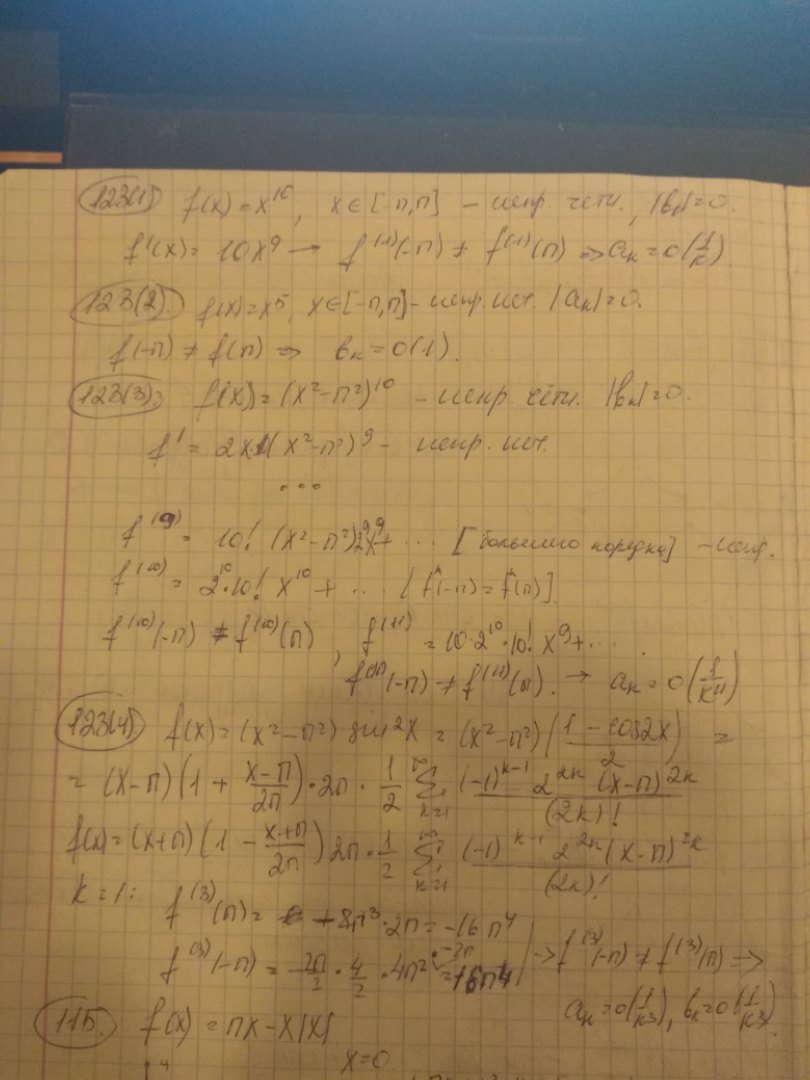 123(1) f(x) = x^10, x∈[-π,π] - непр. четн., |b_k|=0.
f'(x) = 10x^9 → f^(1)(-π) ≠ f^(1)(π) ⇒ a_k = o(1/k)
123(2). f(x) = x^5, x∈[-π,π] - непр. неч. |a_k|=0.
f(-π) ≠ f(π) ⇒ b_k = o(1).
123(3). f(x) = (x²-π²)^10 - непр. четн. |b_k|=0.
f' = 2x (x²-π²)^9 - непр. неч.
...
f^(9) = 10! (x²-π²) 2^9 x^9 + ... [большего порядка] - непр.
f^(10) = 2^10·10! x^10 + ... [f(-π) = f(π)]
f^(10)(-π) = f^(10)(π), f^(11) = 10·2^10·10! x^9 + ...
f^(11)(-π) ≠ f^(11)(π). → a_k = o(1/k^11)
123(4) f(x) = (x²-π²) sin²x = (x²-π²) (1-cos2x)/2 =
= (x-π)(1 + (x-π)/2π)·2π·1/2 ∑_{k=1}^∞ (-1)^{k-1} 2^{2k} (x-π)^{2k}/(2k)!
f(x) = (x+π)(1 - (x+π)/2π) 2π·1/2 ∑_{k=1}^∞ (-1)^{k-1} 2^{2k} (x-π)^{2k}/(2k)!
k=1:
f^(3)(π) = + 8π³·2π = -16π^4
f^(3)(-π) = -2π/2 · 4/2 · 4π² · -2π = 16π^4 | → f^(3)(-π) ≠ f^(3)(π) →
a_k = o(1/k³), b_k = o(1/k³).
115. f(x) = πx - x|x|
x=0